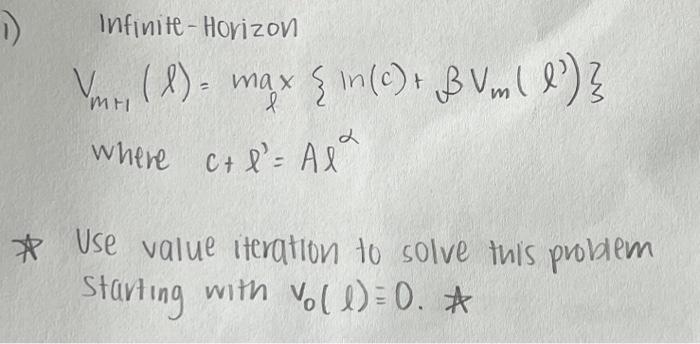 i) Infinite-Horizon
Vm+1(l) = max l { ln(c) + βVm(l') }
where c + l' = Al^α
* Use value iteration to solve this problem
starting with v0(l) ≡ 0. *